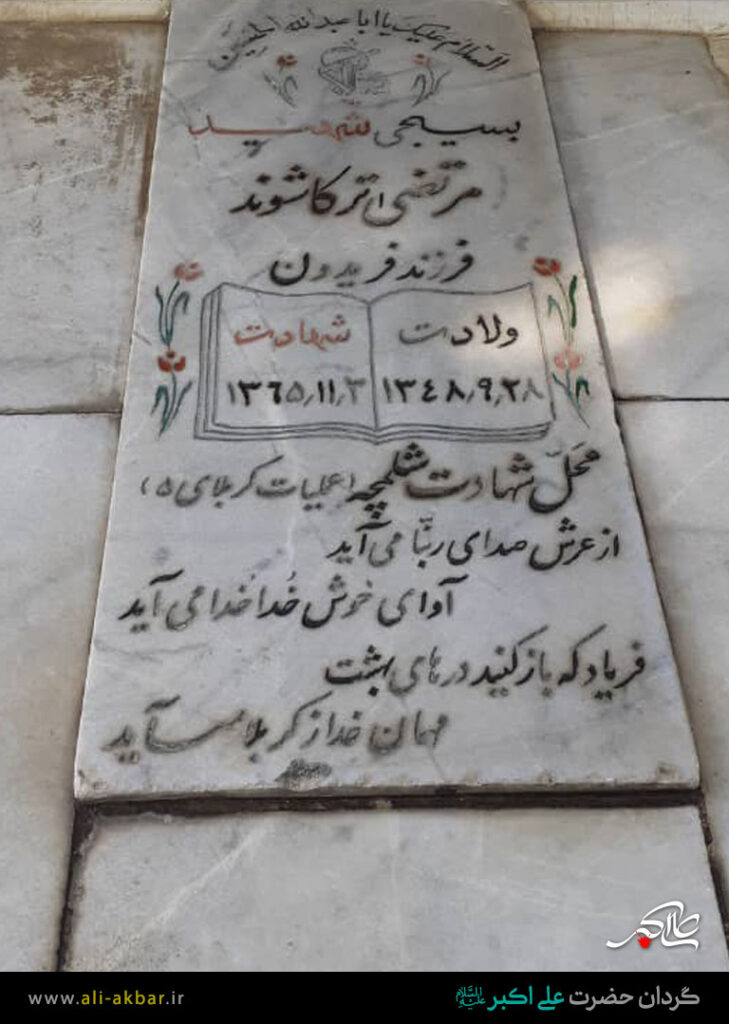 السلام علیک یا ابا عبدالله الحسین
بسیجی شهید
مرتضی اترکاشوند
فرزند فریدون
ولادت
۱۳۴۸٫۹٫۲۸
شهادت
۱۳۶۵٫۱۱٫۳
محلّ شهادت شلمچه (عملیات کربلای ۵)
از عرش صدای ربّنا می آید
آوای خوش خُدا خُدا می آید
فریاد که باز کنید درهای بهشت
مهمان خدا از کربلا می آید
علی اکبر
www.ali-akbar.ir
گردان حضرت علی اکبر علیه السلام